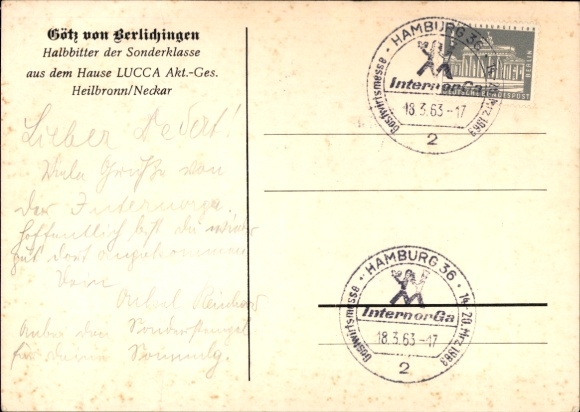 Götz von Berlichingen
Halbbitter der Sonderklasse
aus dem Hause LUCCA Akt.-Ges.
Heilbronn/Neckar
Lieber
Viele Grüße von
der Internorga.
hoffentlich bist du wieder
gut dort angekommen
Dein
Onkel
Anbei den Sonderstempel
für deine Sammlg.
HAMBURG 36
InternorGa
18.3.63-17
Gastwirtsmesse
2
DEUTSCHE BUNDESPOST
BERLIN
HAMBURG 36 · 14.-20. Mrz. 1963
InternorGa
18.3.63-17
Gastwirtsmesse
2